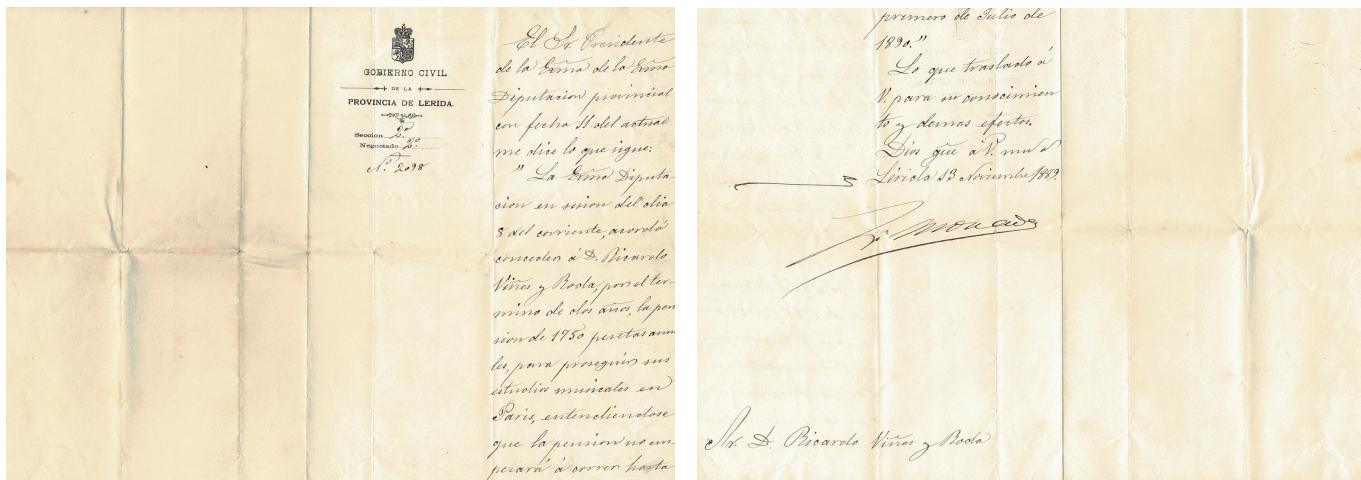 GOBIERNO CIVIL
DE LA
PROVINCIA DE LERIDA.
Seccion 2ª
Negociado 2º
Nº 2098
El Sr. Presidente
de la Exma de la Exma
Diputacion provincial
con fecha 11 del actual
me dice lo que sigue:
"La Exma Diputa-
cion en sesion del dia
8 del corriente, acordó
conceder á D. Ricardo
Viñes y Roda, por el ter-
mino de dos años, la pen
sion de 1750 pesetas anua
les, para proseguir sus
estudios musicales en
Paris, entendiendose
que la pension no em-
pezará á correr hasta
primero de Julio de
1890."
Lo que traslado á
V. para su conocimien
to y demas efectos.
Dios gue á V. m a
Lérida 13 Noviembre 1889.
Sr. D. Ricardo Viñes y Roda